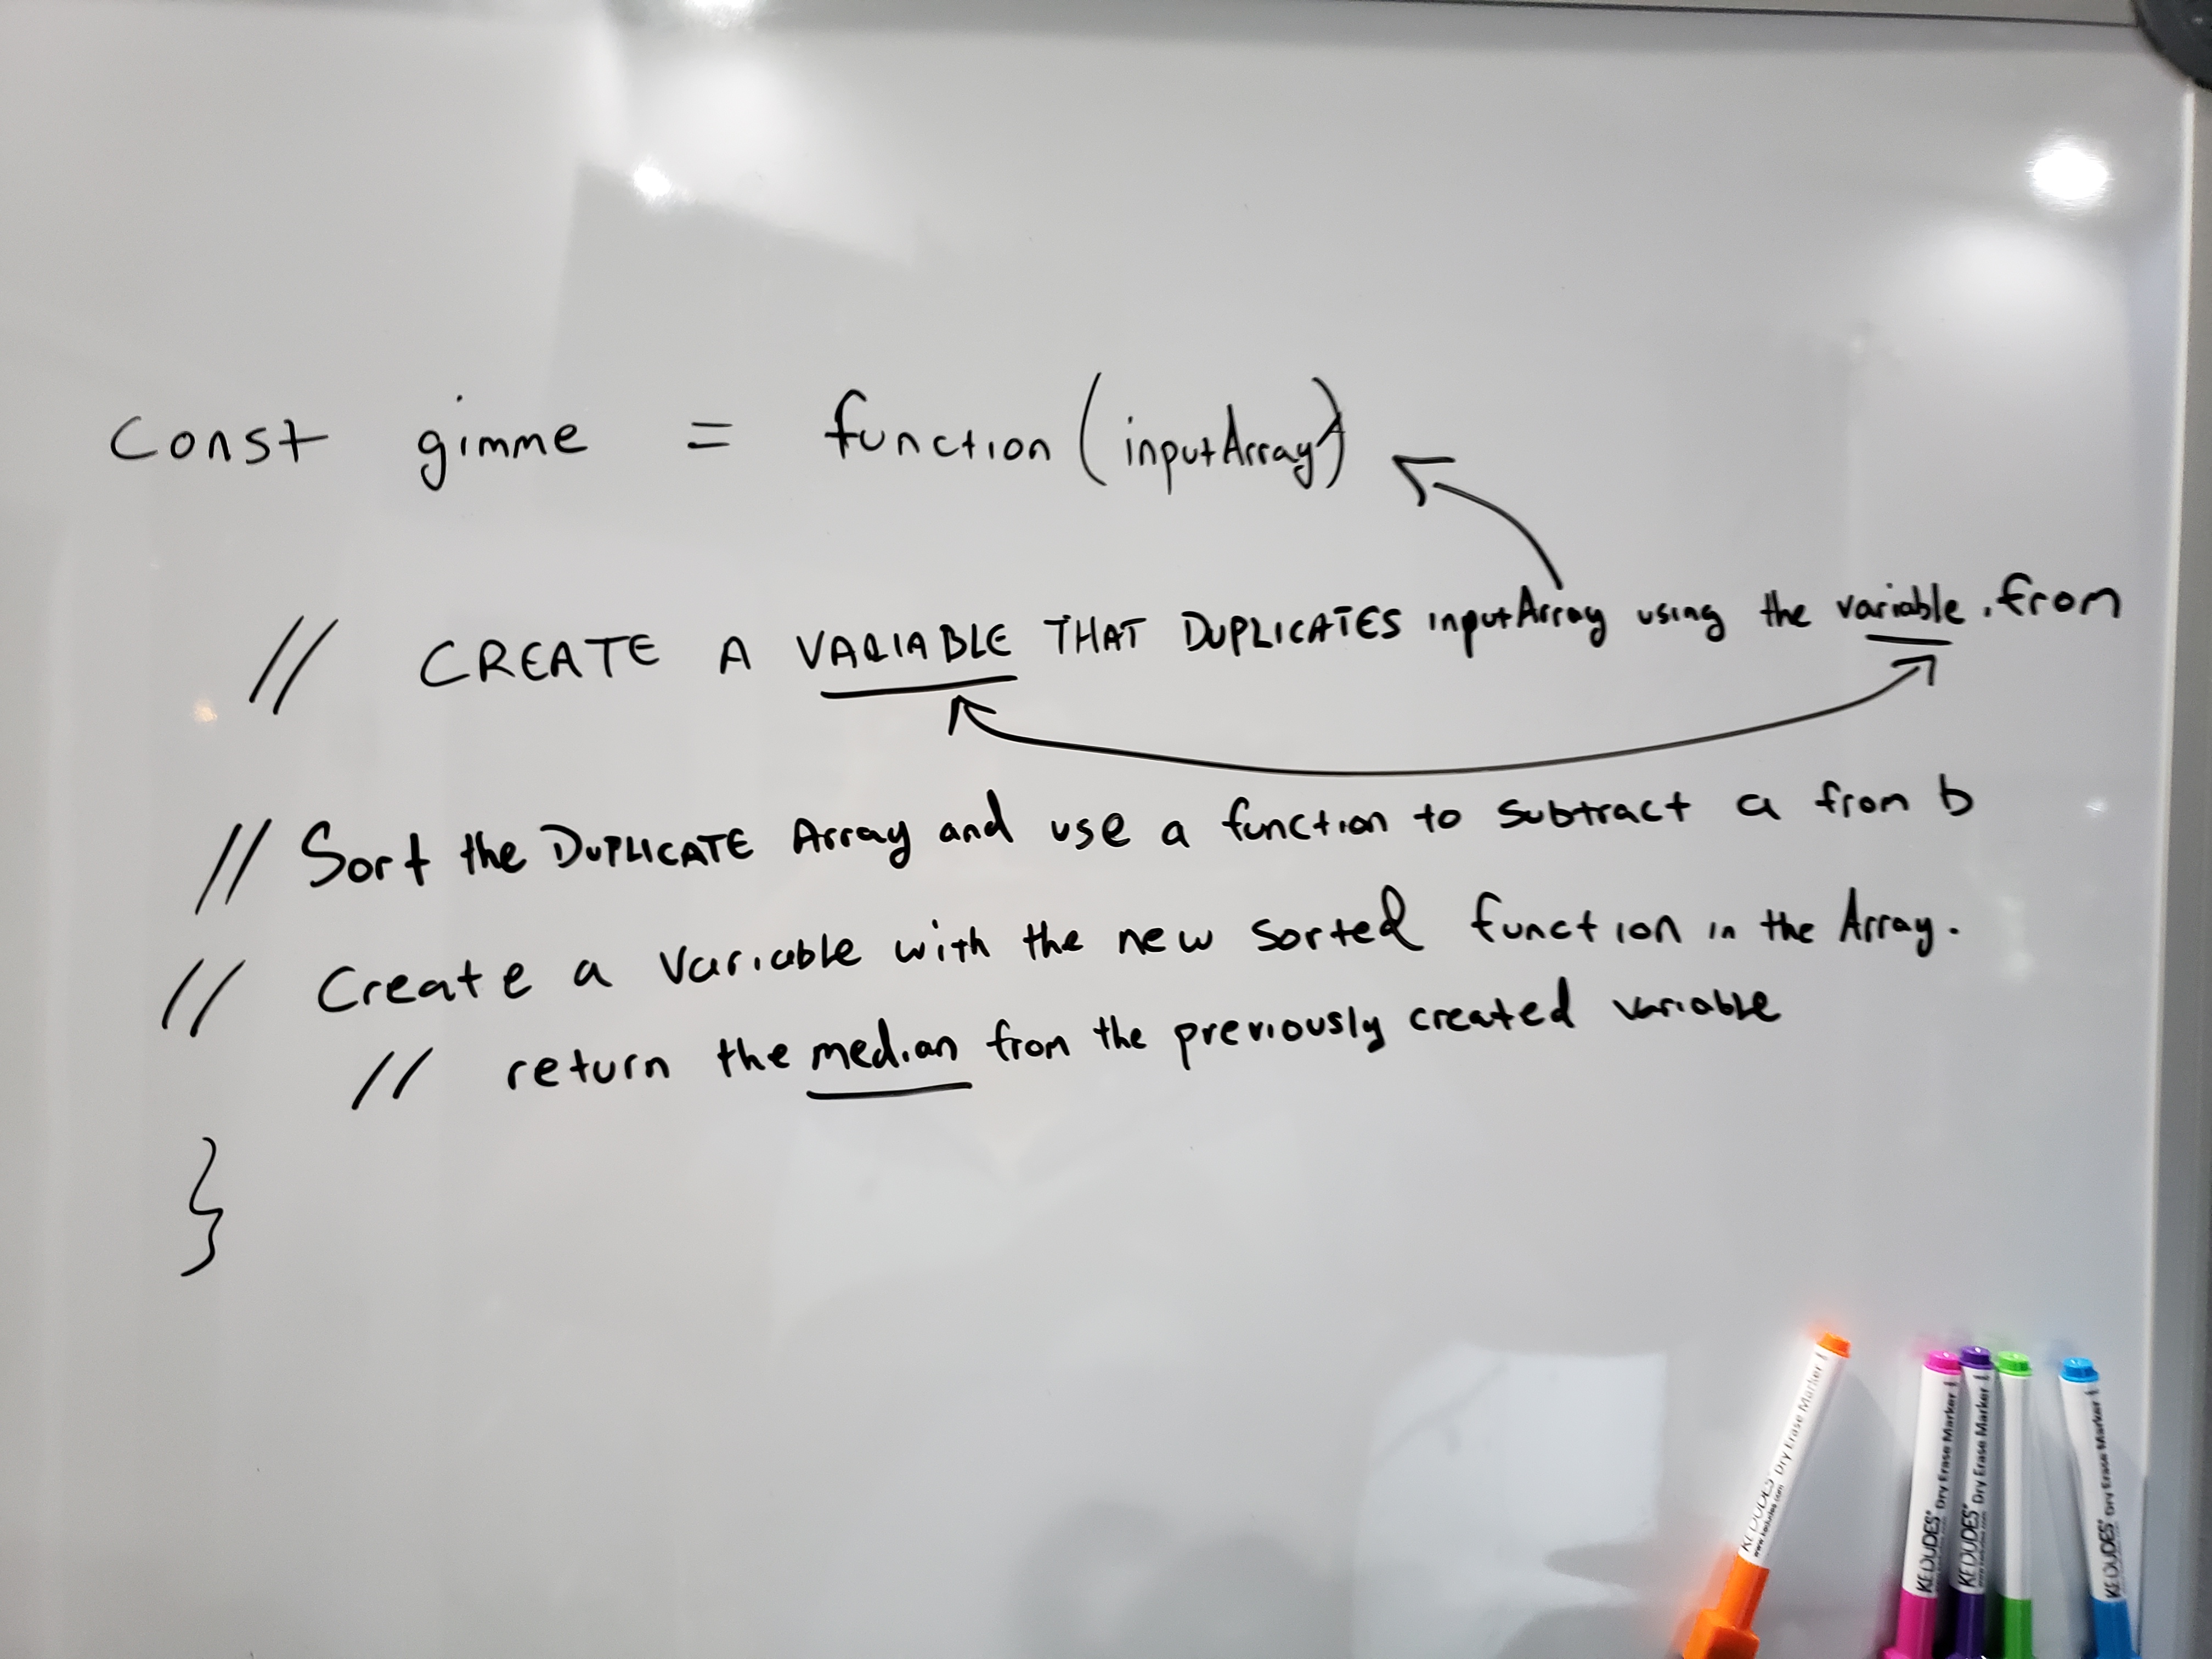 const gimme = function (inputArray)
// CREATE A VARIABLE THAT DUPLICATES inputArray using the variable.from
// Sort the DUPLICATE Array and use a function to subtract a from b
// Create a variable with the new sorted function in the Array.
// return the median from the previously created variable
}
KEDUDES® Dry Erase Marker
KEDUDES® Dry Erase Marker
KEDUDES® Dry Erase Marker
KEDUDES® Dry Erase Marker